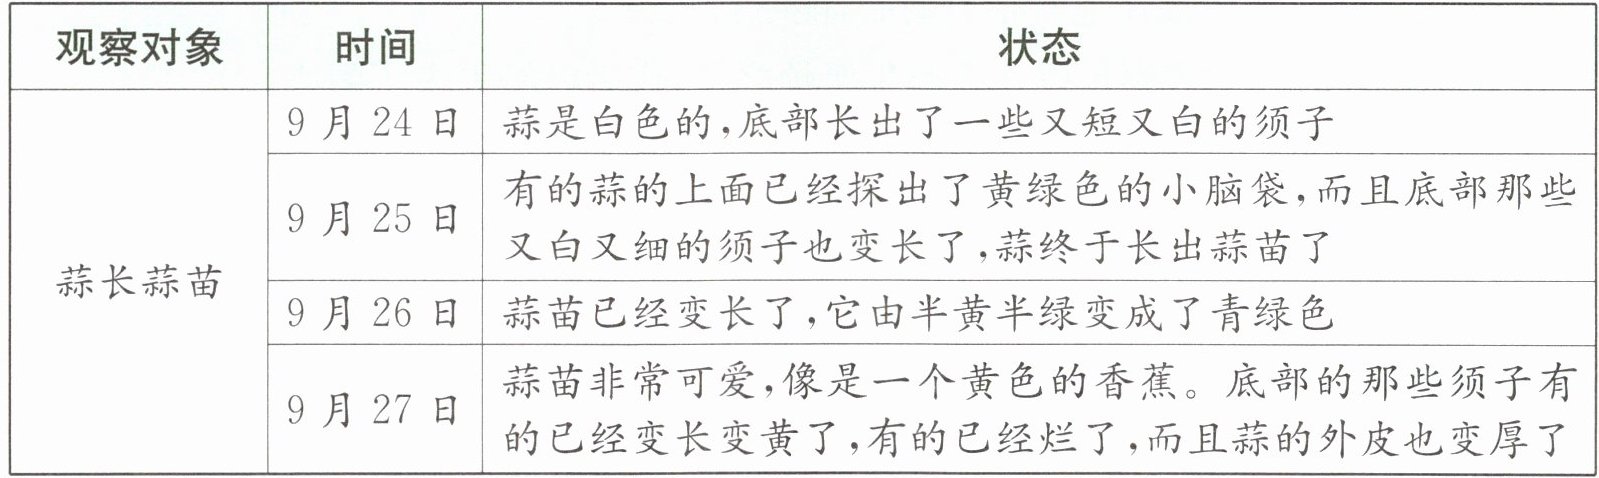 观察对象 时间 状态
蒜长蒜苗
9月24日 蒜是白色的,底部长出了一些又短又白的须子
9月25日 有的蒜的上面已经探出了黄绿色的小脑袋,而且底部那些
又白又细的须子也变长了,蒜终于长出蒜苗了
9月26日 蒜苗已经变长了,它由半黄半绿变成了青绿色
9月27日 蒜苗非常可爱,像是一个黄色的香蕉。底部的那些须子有
的已经变长变黄了,有的已经烂了,而且蒜的外皮也变厚了